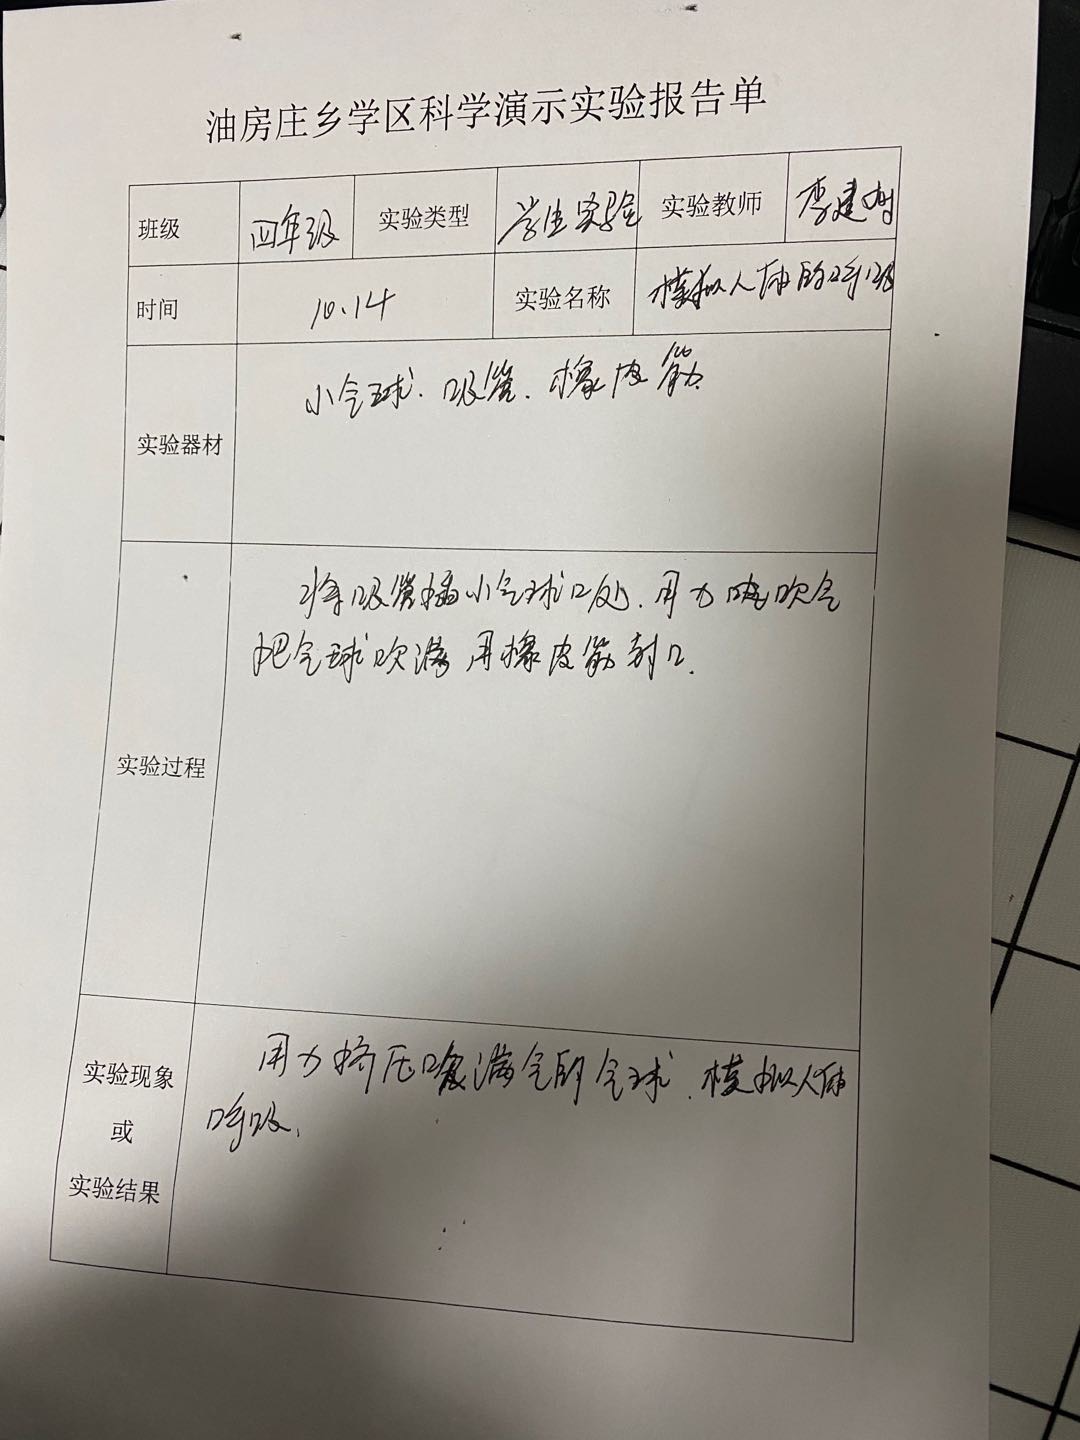 油房庄乡学区科学演示实验报告单
班级 四年级 实验类型 学生实验 实验教师 李建
时间 10.14 实验名称 模拟人体的呼吸
实验器材 小气球.吸管.橡皮筋
将吸管插小气球口处.用力吹气
把气球吹满用橡皮筋封口.
实验过程
用力挤压满气的气球.模拟人体
呼吸.
实验现象
或
实验结果